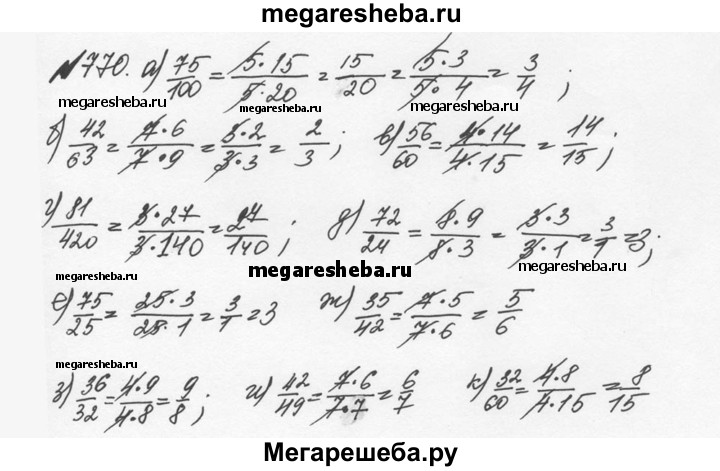 megaresheba.ru
№770. а) 75/100 = 5·15/5·20 = 15/20 = 5·3/5·4 = 3/4;
megaresheba.ru megaresheba.ru megaresheba.ru
б) 42/63 = 7·6/7·9 = 3·2/3·3 = 2/3; в) 56/60 = 4·14/4·15 = 14/15;
г) 81/420 = 3·27/3·140 = 27/140; д) 72/24 = 8·9/8·3 = 3·3/3·1 = 3/1 = 3;
megaresheba.ru megaresheba.ru megaresheba.ru
е) 75/25 = 25·3/25·1 = 3/1 = 3 ж) 35/42 = 7·5/7·6 = 5/6
megaresheba.ru megaresheba.ru megaresheba.ru
з) 36/32 = 4·9/4·8 = 9/8; и) 42/49 = 7·6/7·7 = 6/7 к) 32/60 = 4·8/4·15 = 8/15
Мегарешеба.ру